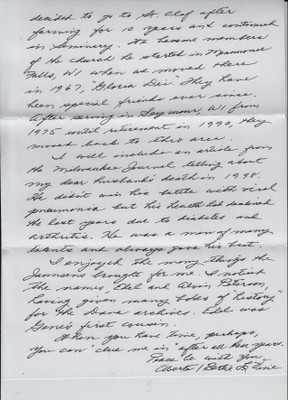 decided to go to St. Olaf after
farming for 10 years and continued
in Seminary. We became members
of the church he started in Menomonee
Falls, WI when we moved there
in 1967, "Gloria Dei." They have
been special friends ever since.
After serving in Seymour, WI from
1975 until retirement in 1990, they
moved back to this area.
I will include an article from
the Milwaukee Journal telling about
my dear husband's death in 1998.
He didn't win his battle with viral
pneumonia but his health had weakened
the last years due to diabetes and
arthritis. He was a man of many
talents and always gave his best.
I enjoyed the many things the
brought for me. I noticed
the names, Edel and Alvin Peterson,
having given many boxes of "history"
for the Dana archives. Edel was
Gene's first cousin.
When you have time perhaps,
you can "clue me in" after all these years.
Peace be with you,